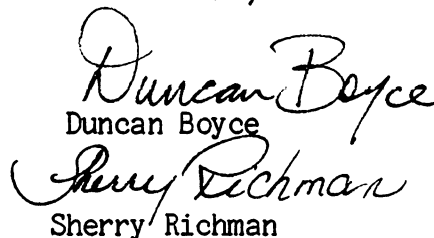 Duncan Boyce
Duncan Boyce
Sherry Richman
Sherry Richman